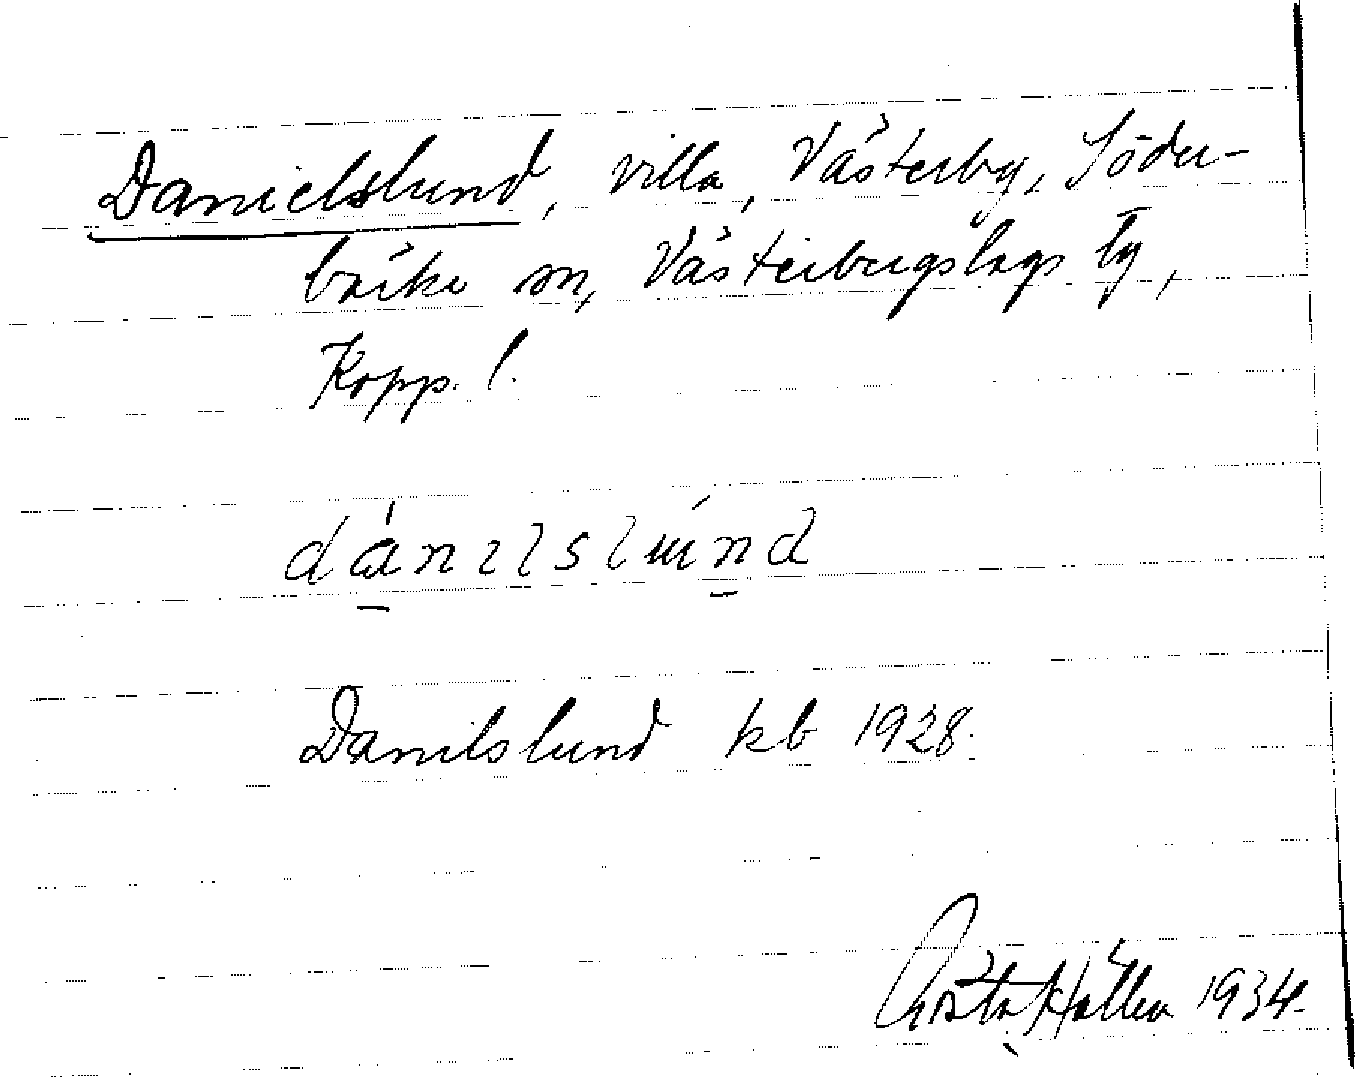 Danielslund, villa, Västerby, Söder-
bärke sn, Västerbergslags tg,
Kopp. l.
dánɩlslúnd
Danilslund kb 1928.
Gösta Hallén 1934.